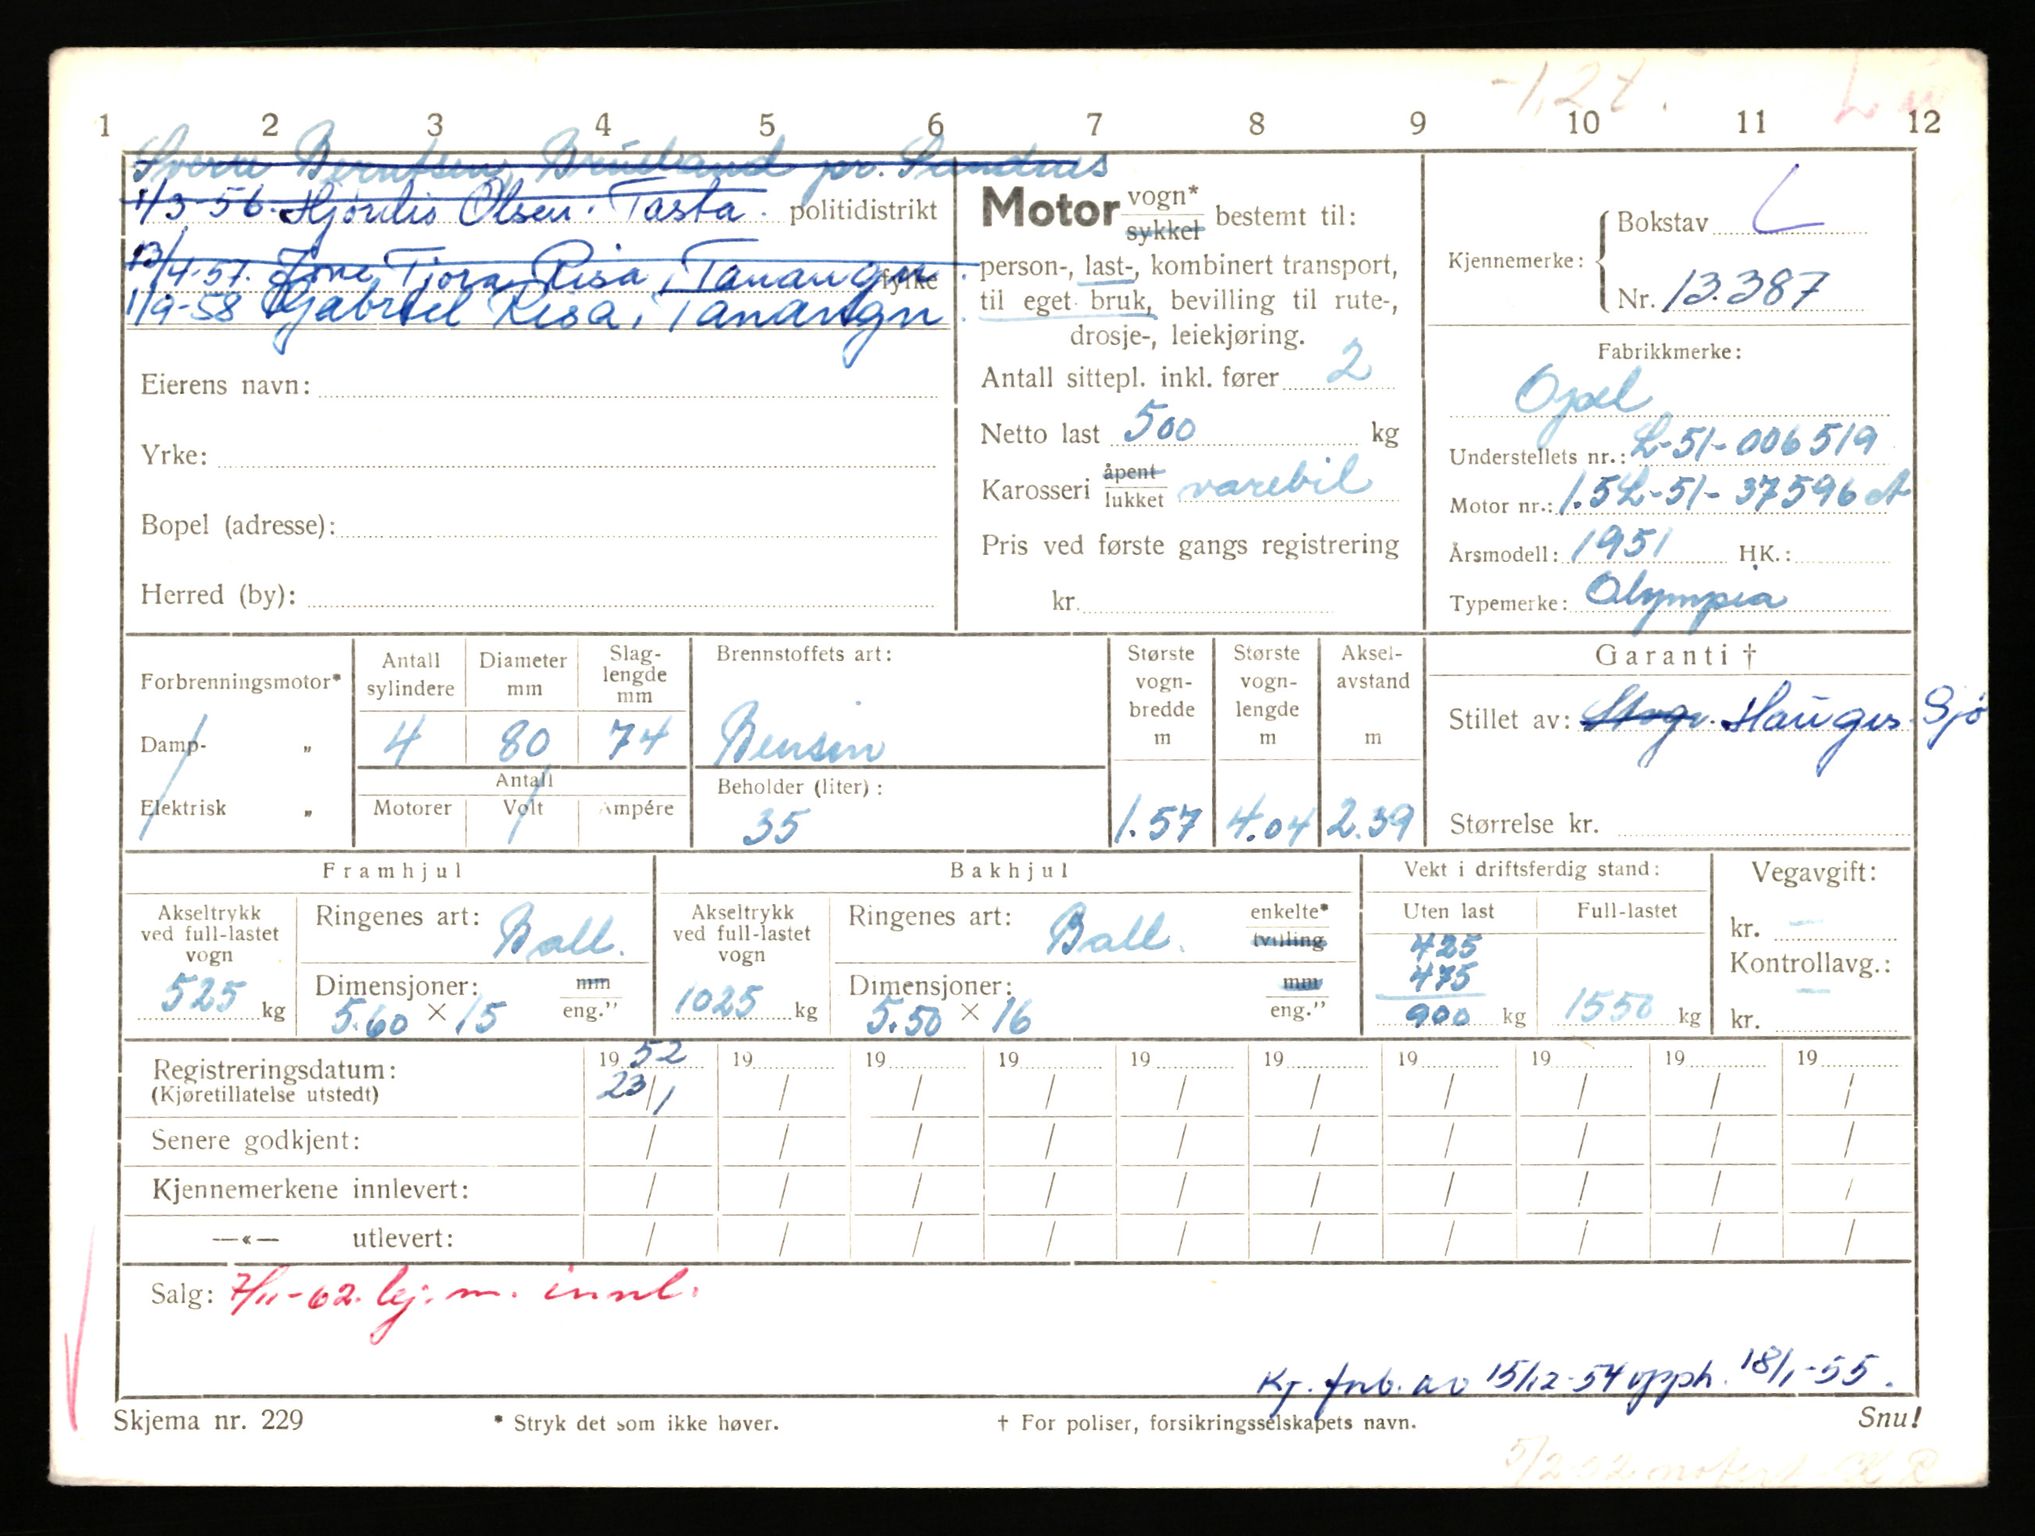 -1,2t.
1 2 3 4 5 6 7 8 9 10 11 12
Sverre Berntsen, Brueland pr. Sandnes
1/3-56. Hjørdis Olsen. Tasta. politidistrikt
13/4-57. Tjora Risa, Tananger fylke
1/9-58 Gabriel Risa, Tananger
Eierens navn:
Yrke:
Bopel (adresse):
Herred (by):
Motor vogn* sykkel bestemt til:
person-, last-, kombinert transport,
til eget bruk, bevilling til rute-,
drosje-, leiekjøring.
Antall sittepl. inkl. fører 2
Netto last 500 kg
Karosseri åpent lukket varebil
Pris ved første gangs registrering
kr.
Kjennemerke: Bokstav L
Nr. 13.387
Fabrikkmerke:
Opel
Understellets nr.: L-51-006519
Motor nr.: 1.5L-51-37596 A
Årsmodell: 1951 HK.:
Typemerke: Olympia
Forbrenningsmotor*
Damp- „
Elektrisk „
Antall sylindere 4
Diameter mm 80
Slag-lengde mm 74
Antall
Motorer Volt Ampére
Brennstoffets art:
Bensin
Beholder (liter):
35
Største vogn-bredde m 1.57
Største vogn-lengde m 4.04
Aksel-avstand m 2.39
Garanti †
Stillet av: Hauges. Sjø
Størrelse kr.
Framhjul
Akseltrykk ved full-lastet vogn 525 kg
Ringenes art: Ball.
Dimensjoner: 5.60 × 15 mm eng."
Bakhjul
Akseltrykk ved full-lastet vogn 1025 kg
Ringenes art: Ball. enkelte* tvilling
Dimensjoner: 5.50 × 16 mm eng."
Vekt i driftsferdig stand:
Uten last Full-lastet
425
475
900 kg 1550 kg
Vegavgift:
kr. —
Kontrollavg.:
kr. —
Registreringsdatum: 19 52 19 19 19 19 19 19 19 19 19
(Kjøretillatelse utstedt) 23/1 / / / / / / / / /
Senere godkjent: / / / / / / / / / /
Kjennemerkene innlevert: / / / / / / / / / /
—«— utlevert: / / / / / / / / / /
Salg: 7/11-62. kj. m. innl.
Kj. forb. av 15/12-54 opph. 18/1-55.
Skjema nr. 229 * Stryk det som ikke høver. † For poliser, forsikringsselskapets navn. Snu!